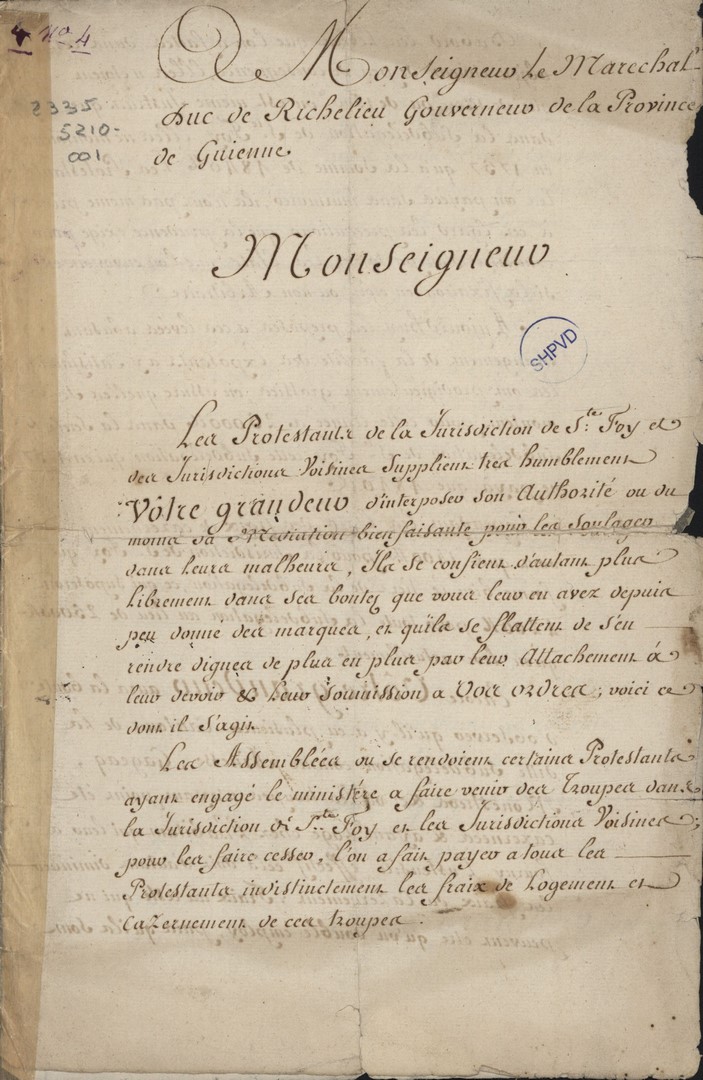 4 No. 4
2335
5210-
001
A Monseigneur Le Marechal
Duc de Richelieu Gouverneur de la Province
de Guienne.
Monseigneur
SHPVD
Les Protestants de la Jurisdiction de Ste. Foy et
des Jurisdictions Voisines Supplient tres humblement
Vôtre grandeur d'interposer son Authorité ou du
moins sa Médiation bien faisante pour les soulager
dans leurs malheurs, Ils se confient d'autant plus
librement dans ses bontez que vous leur en avez depuis
peu donné des marques, et qu'ils se flattent de s'en
rendre dignes de plus en plus par leur Attachement á
leur devoir & leur soumission a vos ordres; voici ce
dont il s'agit
Les Assemblées ou se rendoient certains Protestants
ayant engagé le ministére a faire venir des troupes dans
la Jurisdiction de Ste. Foy et les Jurisdictions Voisines;
pour les faire cesser, l'on a fait payer a tous les
Protestants indistinctement les fraix de Logement et
Cazernement de ces troupes.